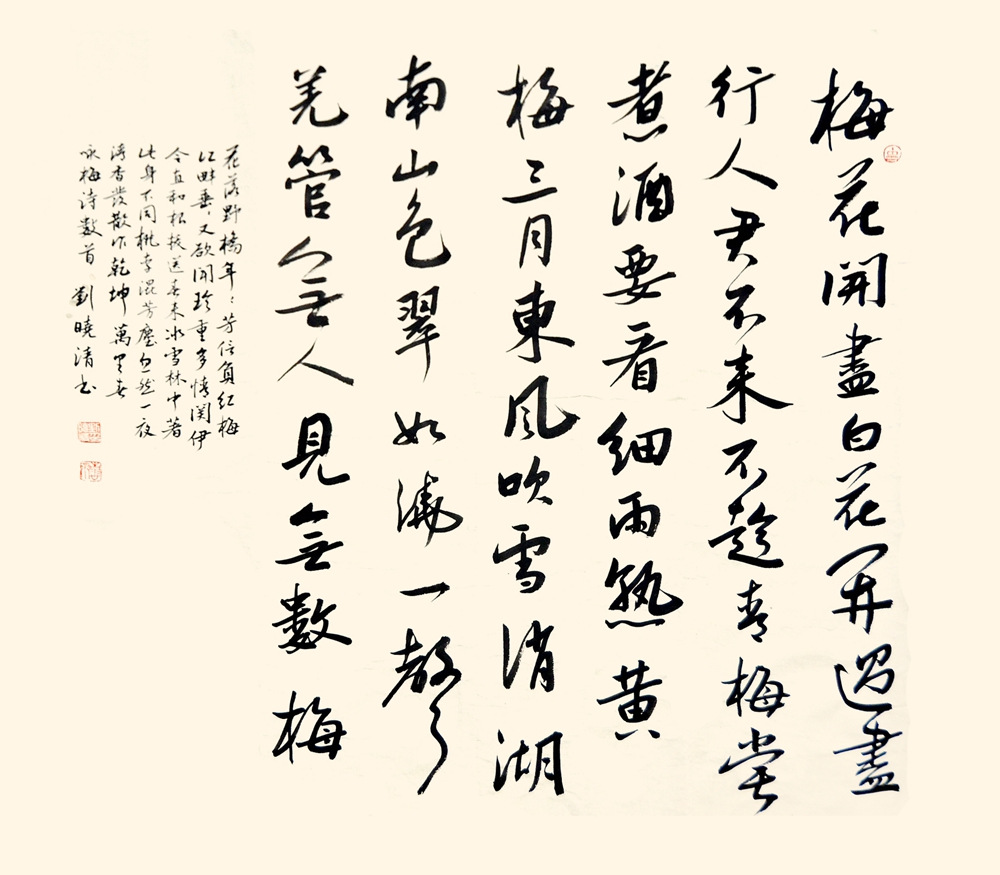 梅花開盡白花开過盡
行人君不来不趁青梅嘗
煮酒要看細雨熟黄
梅三月東風吹雪消湖
南山色翠如澆一聲
羌管無人見無數梅
花落野橋年〻芳信負红梅
江畔垂〻又欲開珍重多情関伊
令直和根拔送春来冰雪林中著
此身不同桃李混芳塵忽然一夜
清香發散作乾坤萬里春
咏梅诗數首 劉曉清书